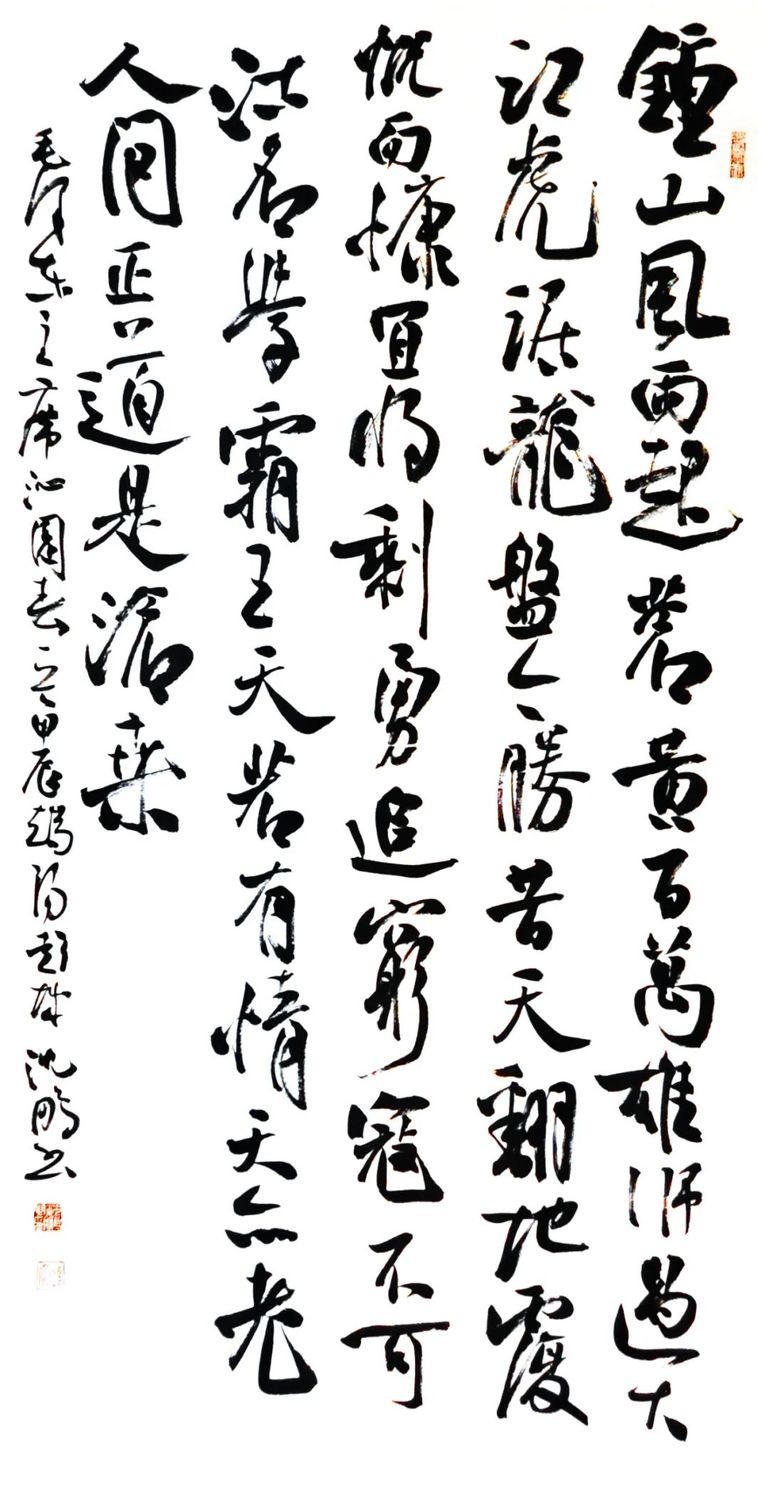 鍾山風雨起蒼黄百萬雄師過大
江虎踞龍盤今勝昔天翻地覆
慨而慷宜將剩勇追窮寇不可
沽名學霸王天若有情天亦老
人間正道是滄桒
毛澤東主席沁園春甲辰端陽沈鵬書